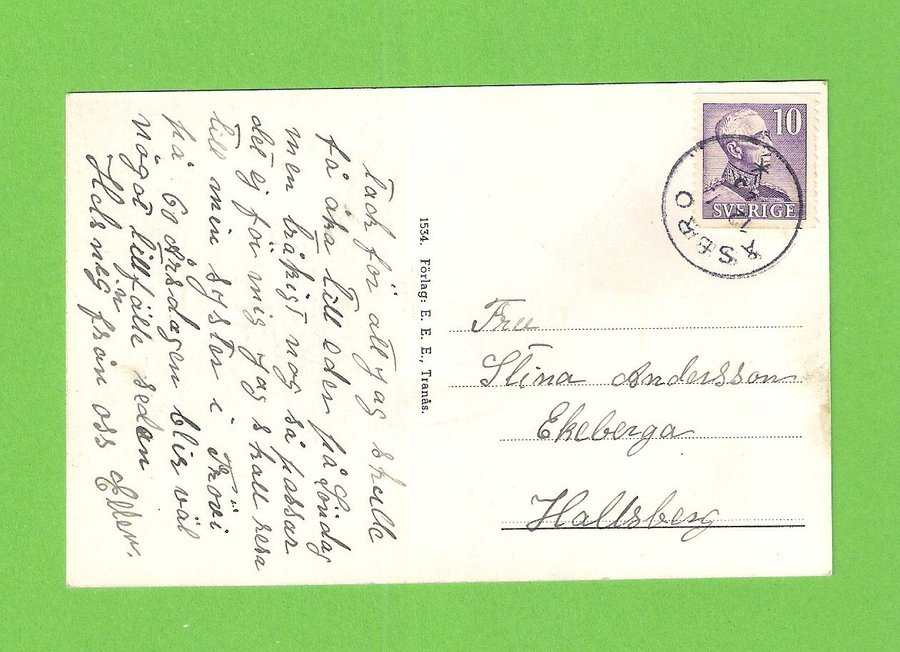 Tack för att jag skulle
få åka till eder på Söndag
men tråkigt nog så passar
det ej för mig jag skall resa
till min syster i
på 60 Årsdagen blir väl
något tillfälle sedan
Hälsning från oss Ellen.
1534. Förlag: E. E. E., Tranås.
10
SVERIGE
ÅSBRO
Fru
Stina Andersson
Ekeberga
Hallsberg